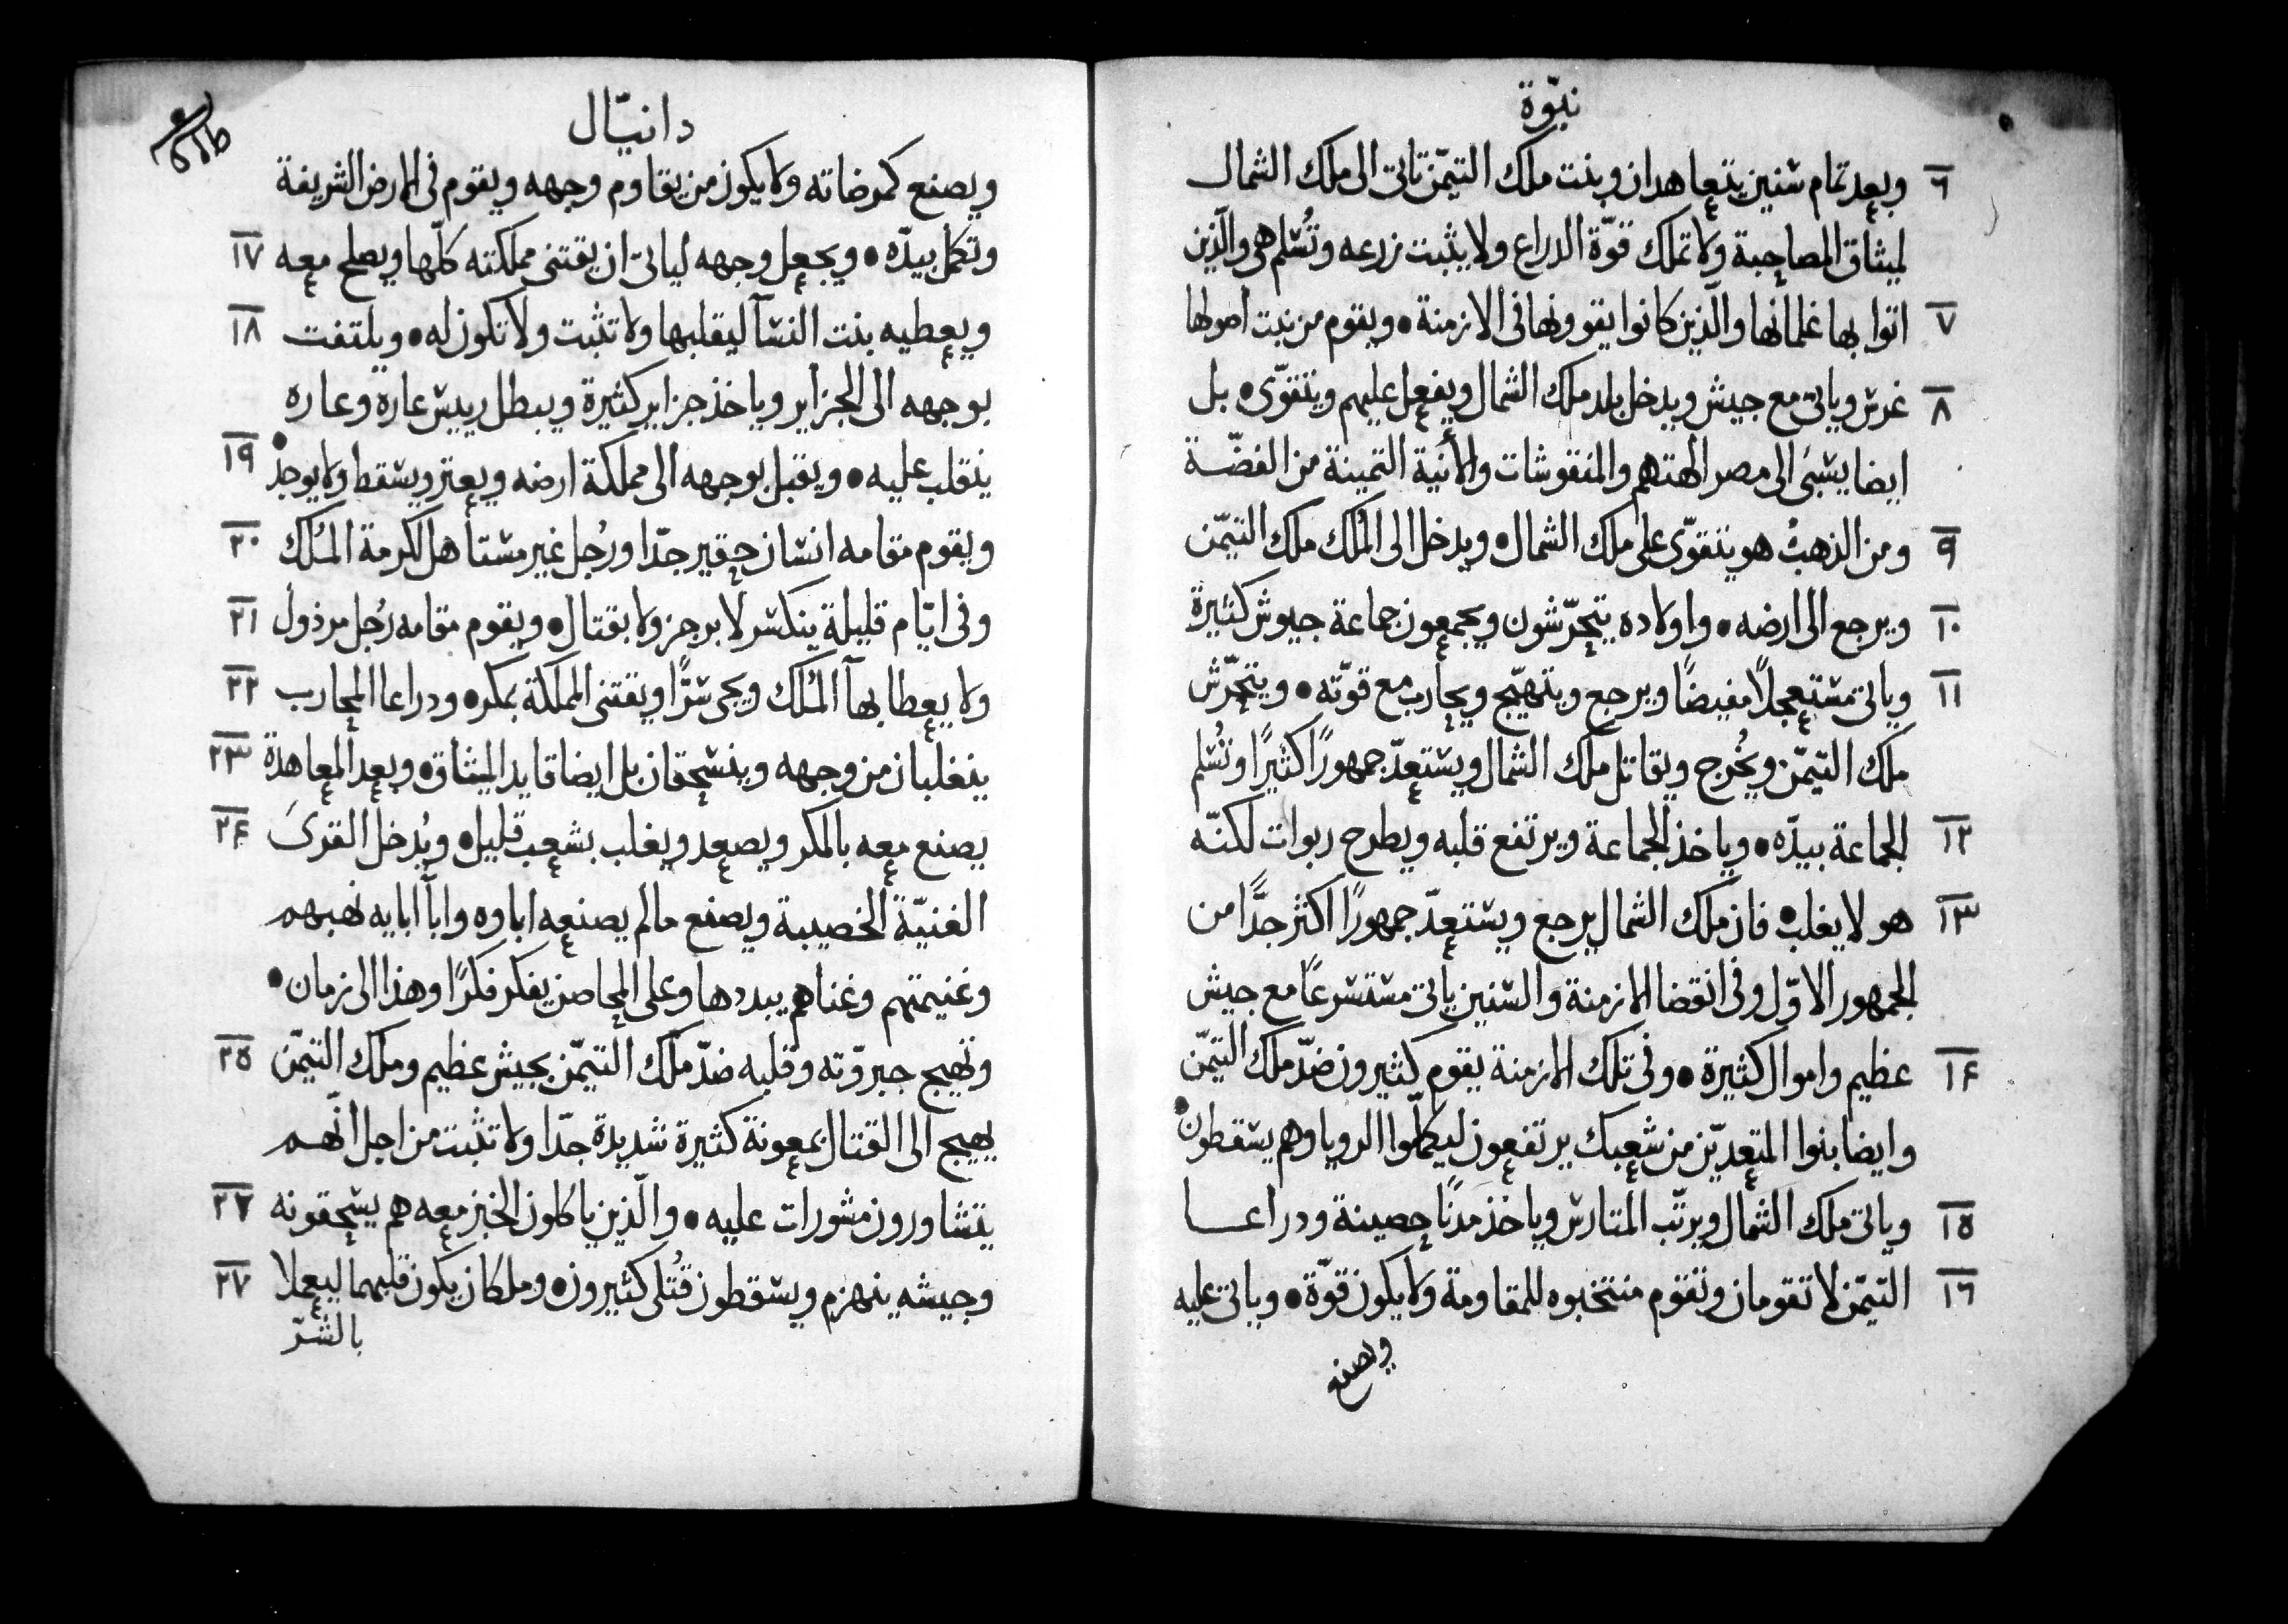 نبوّة
٦ وبعد تمام سنين يتعاهدان وبنت ملك التيمّن تاتى الى ملك الشمال
لميثاق المصاحبة ولا تملك قوّة الدراع ولا يثبت زرعه وتُسلم هى والّذين
٧ اتوا بها غلمانها والّذين كانوا يقوونها فى الازمنة • ويقوم من نبت اصولها
٨ غرس وياتى مع جيش ويدخل بلد ملك الشمال ويفعل عليهم ويتقوّى • بل
ايضا يسبَى الى مصر الهتهم والمنقوشات والأنية الثمينة من الفضّة
٩ ومن الذهب هو يتقوّى على ملك الشمال • ويدخل الى المُلك ملك التيمّن
١٠ ويرجع الى ارضه • واولاده يتحرّشون ويجمعون جماعة جيوش كثيرة
١١ وياتى مستعجلاً مفيضًا ويرجع ويتهيّج ويحارب مع قوّته • ويتحرّش
ملك التيمّن ويُخرج ويقاتل ملك الشمال ويستعدّ جمهورًا كثيرًا وتُسلم
١٢ الجماعة بيدّه • وياخذ الجماعة ويرتفع قلبه ويطرح ربوات لكنّه
١٣ هو لا يغلب • فان ملك الشمال يرجع ويستعدّ جمهورًا اكثر جدًّا من
الجمهور الاوّل وفى انقضا الازمنة والسنين ياتى مستسرعًا مع جيش
١٤ عظيم واموال كثيرة • وفى تلك الازمنة يقوم كثيرون ضدّ ملك التيمّن
وايضا بنوا المتعديّن من شعبك يرتفعون ليكمّلوا الرويا وهم يسقطون •
١٥ وياتى ملك الشمال ويرتّب المتارس وياخذ مدنًا حصينة ودراعا
١٦ التيمّن لا تقومان وتقوم منتخبوه للمقاومة ولا يكون قوّة • وياتى عليه
ويصنع
دانيّال
ويصنع كمرضاته ولا يكون من يقاوم وجهه ويقوم فى الارض الشريفة
١٧ وتكمل بيدّه • ويجعل وجهه لياتى ان يقتنى مملكته كلّها ويصلح معه
١٨ ويعطيه بنت النسآ ليقلبها ولا تثبت ولا تكون له • ويلتفت
بوجهه الى الجزاير وياخذ جزاير كثيرة ويبطل رييس عاره وعاره
١٩ ينقلب عليه • ويقبل بوجهه الى مملكة ارضه ويعتر ويسقط ولا يوجد •
٢٠ ويقوم مقامه انسان حقير جدّا ورُجل غير مستاهل لكرمة المُلك
٢١ وفى ايّام قليلة ينكسر لا برجز ولا بقتال • ويقوم مقامه رُجل مرذول
٢٢ ولا يعطا بهآ المُلك ويجى سرًّا ويقتنى المملكة بمكر • ودراعا المحارب
٢٣ ينغلبان من وجهه وينسحقان بل ايضا قايد الميثاق • وبعد المعاهدة
٢٤ يصنع معه بالمكر ويصعد ويغلب بشعب قليل • ويُدخل القرىَ
الغنيّة الخصيبة ويصنع مالم يصنعه اباوه وابآ ابايه نهبهم
وغنيمتهم وغناهم يبددها وعلى المحاصن يفكر فكرًا وهذا الى زمان •
٢٥ وتهيج جبروّته وقلبه ضدّ ملك التيمّن بجيش عظيم وملك التيمّن
يهيج الى القتال بمعونة كثيرة شديدة جدّا ولا تثبت من اجل انّهم
٢٦ يتشاورون مشورات عليه • والّذين ياكلون الخبز معه هم يسحقونه
٢٧ وجيشه ينهزم ويسقطون قُتلى كثيرون • وملكان يكون قلبهما ليعملا
بالشرّ